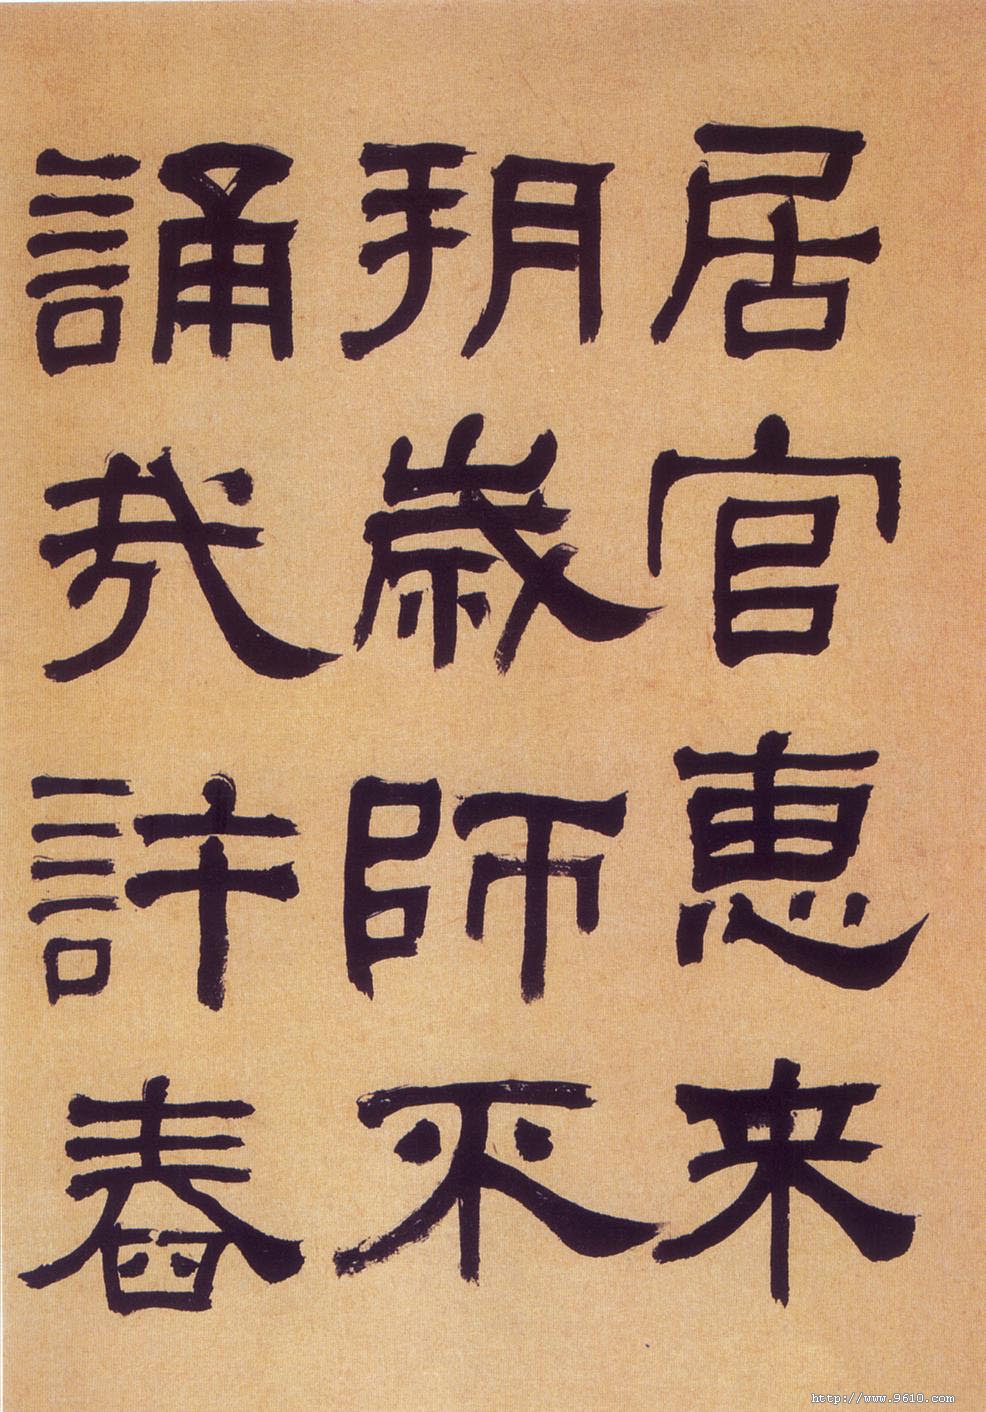 居官恵来
朔歲師不
誦我許舂
http://www.9610.com